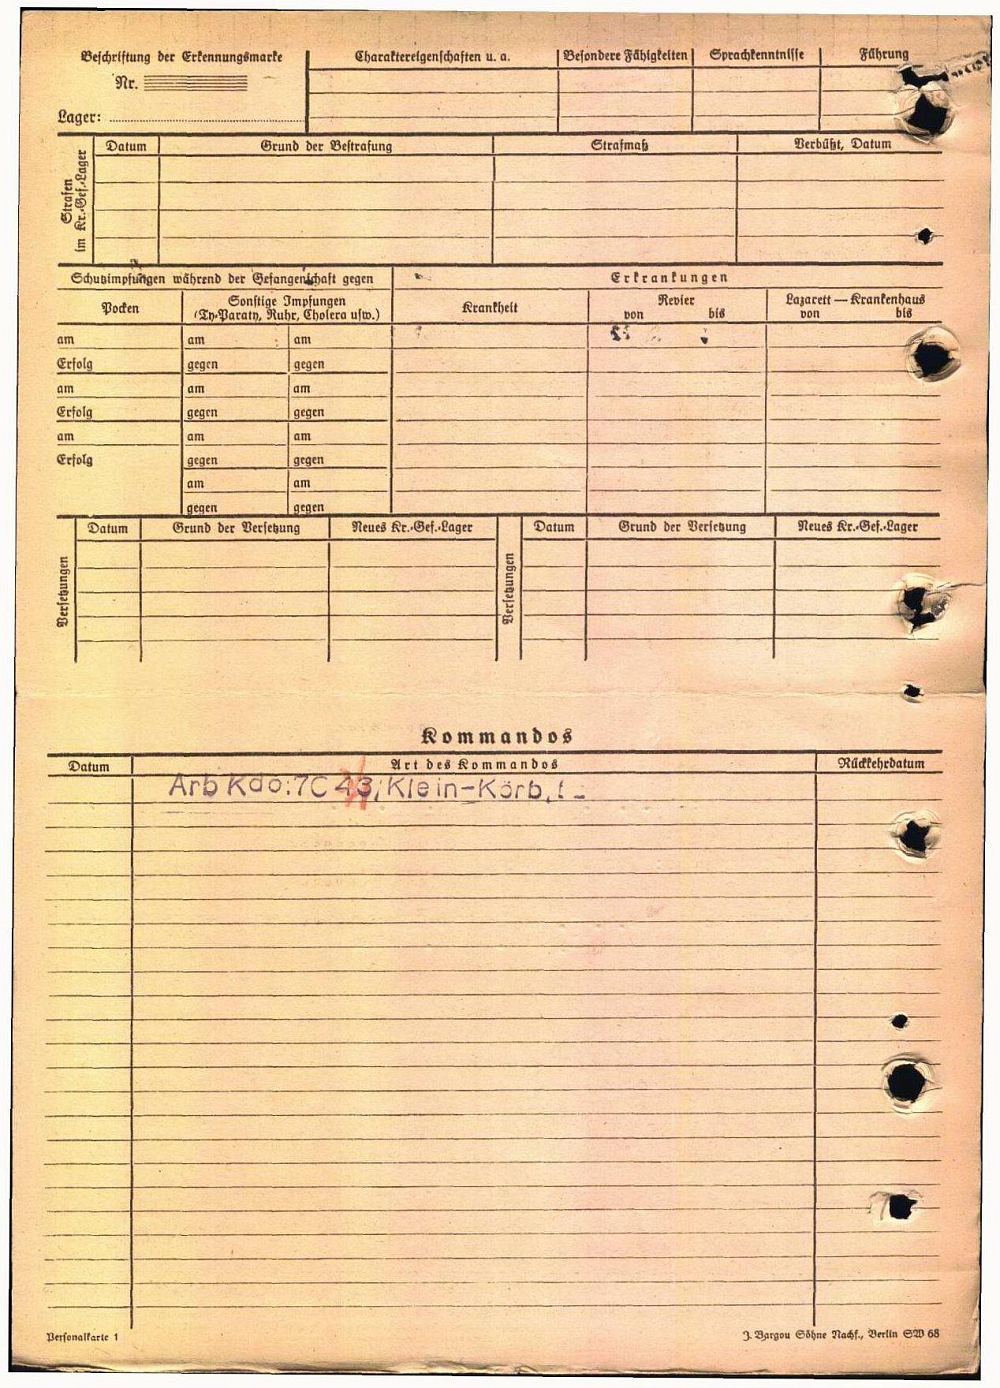 Beschriftung der Erkennungsmarke
Nr.
Lager:
Charaktereigenschaften u. a.
Besondere Fähigkeiten
Sprachkenntnisse
Führung
Strafen im Kr.-Gef.-Lager
Datum
Grund der Bestrafung
Strafmaß
Verbüßt, Datum
Schutzimpfungen während der Gefangenschaft gegen
Erkrankungen
Pocken
Sonstige Impfungen
(Ty-Paraty, Ruhr, Cholera usw.)
Krankheit
Revier
von bis
Lazarett — Krankenhaus
von bis
am am am
Erfolg gegen gegen
am am am
Erfolg gegen gegen
am am am
Erfolg gegen gegen
am am
gegen gegen
Versetzungen
Datum Grund der Versetzung Neues Kr.-Gef.-Lager
Versetzungen
Datum Grund der Versetzung Neues Kr.-Gef.-Lager
Kommandos
Datum Art des Kommandos Rückkehrdatum
Arb Kdo: 7C 43, Klein-Körb,
Personalkarte 1
J. Bargou Söhne Nachf., Berlin SW 68